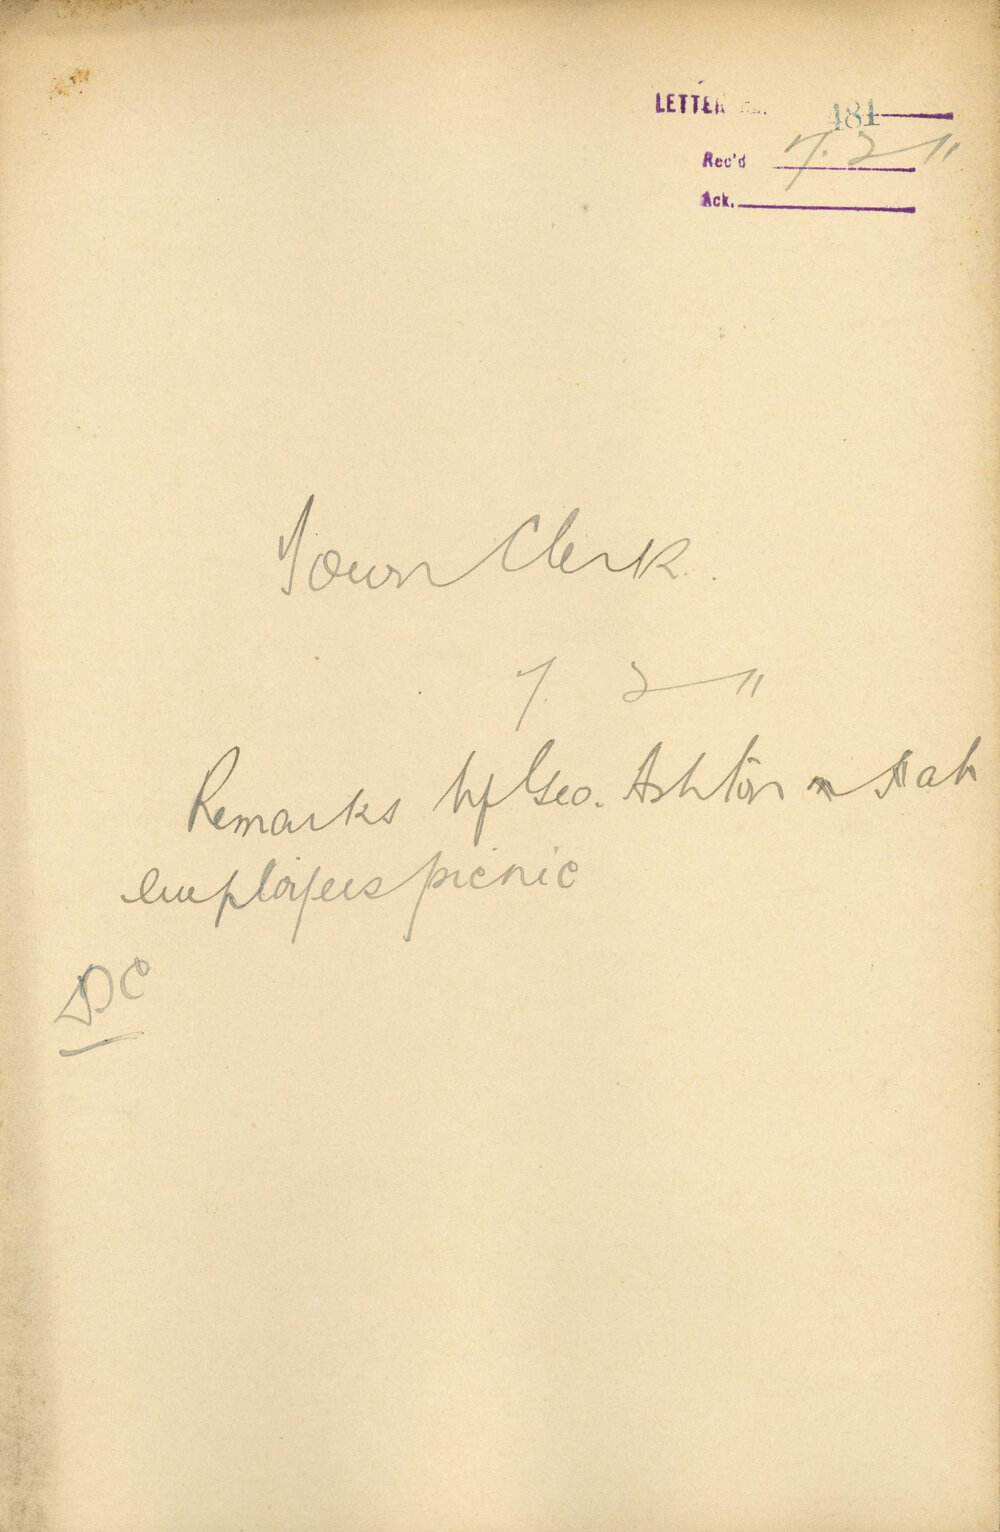 LETTER No. 484
Rec'd 7. 2 11
Ack.
Town Clerk.
7. 2 11
Remarks by Geo. Ashton at
employees picnic
DC